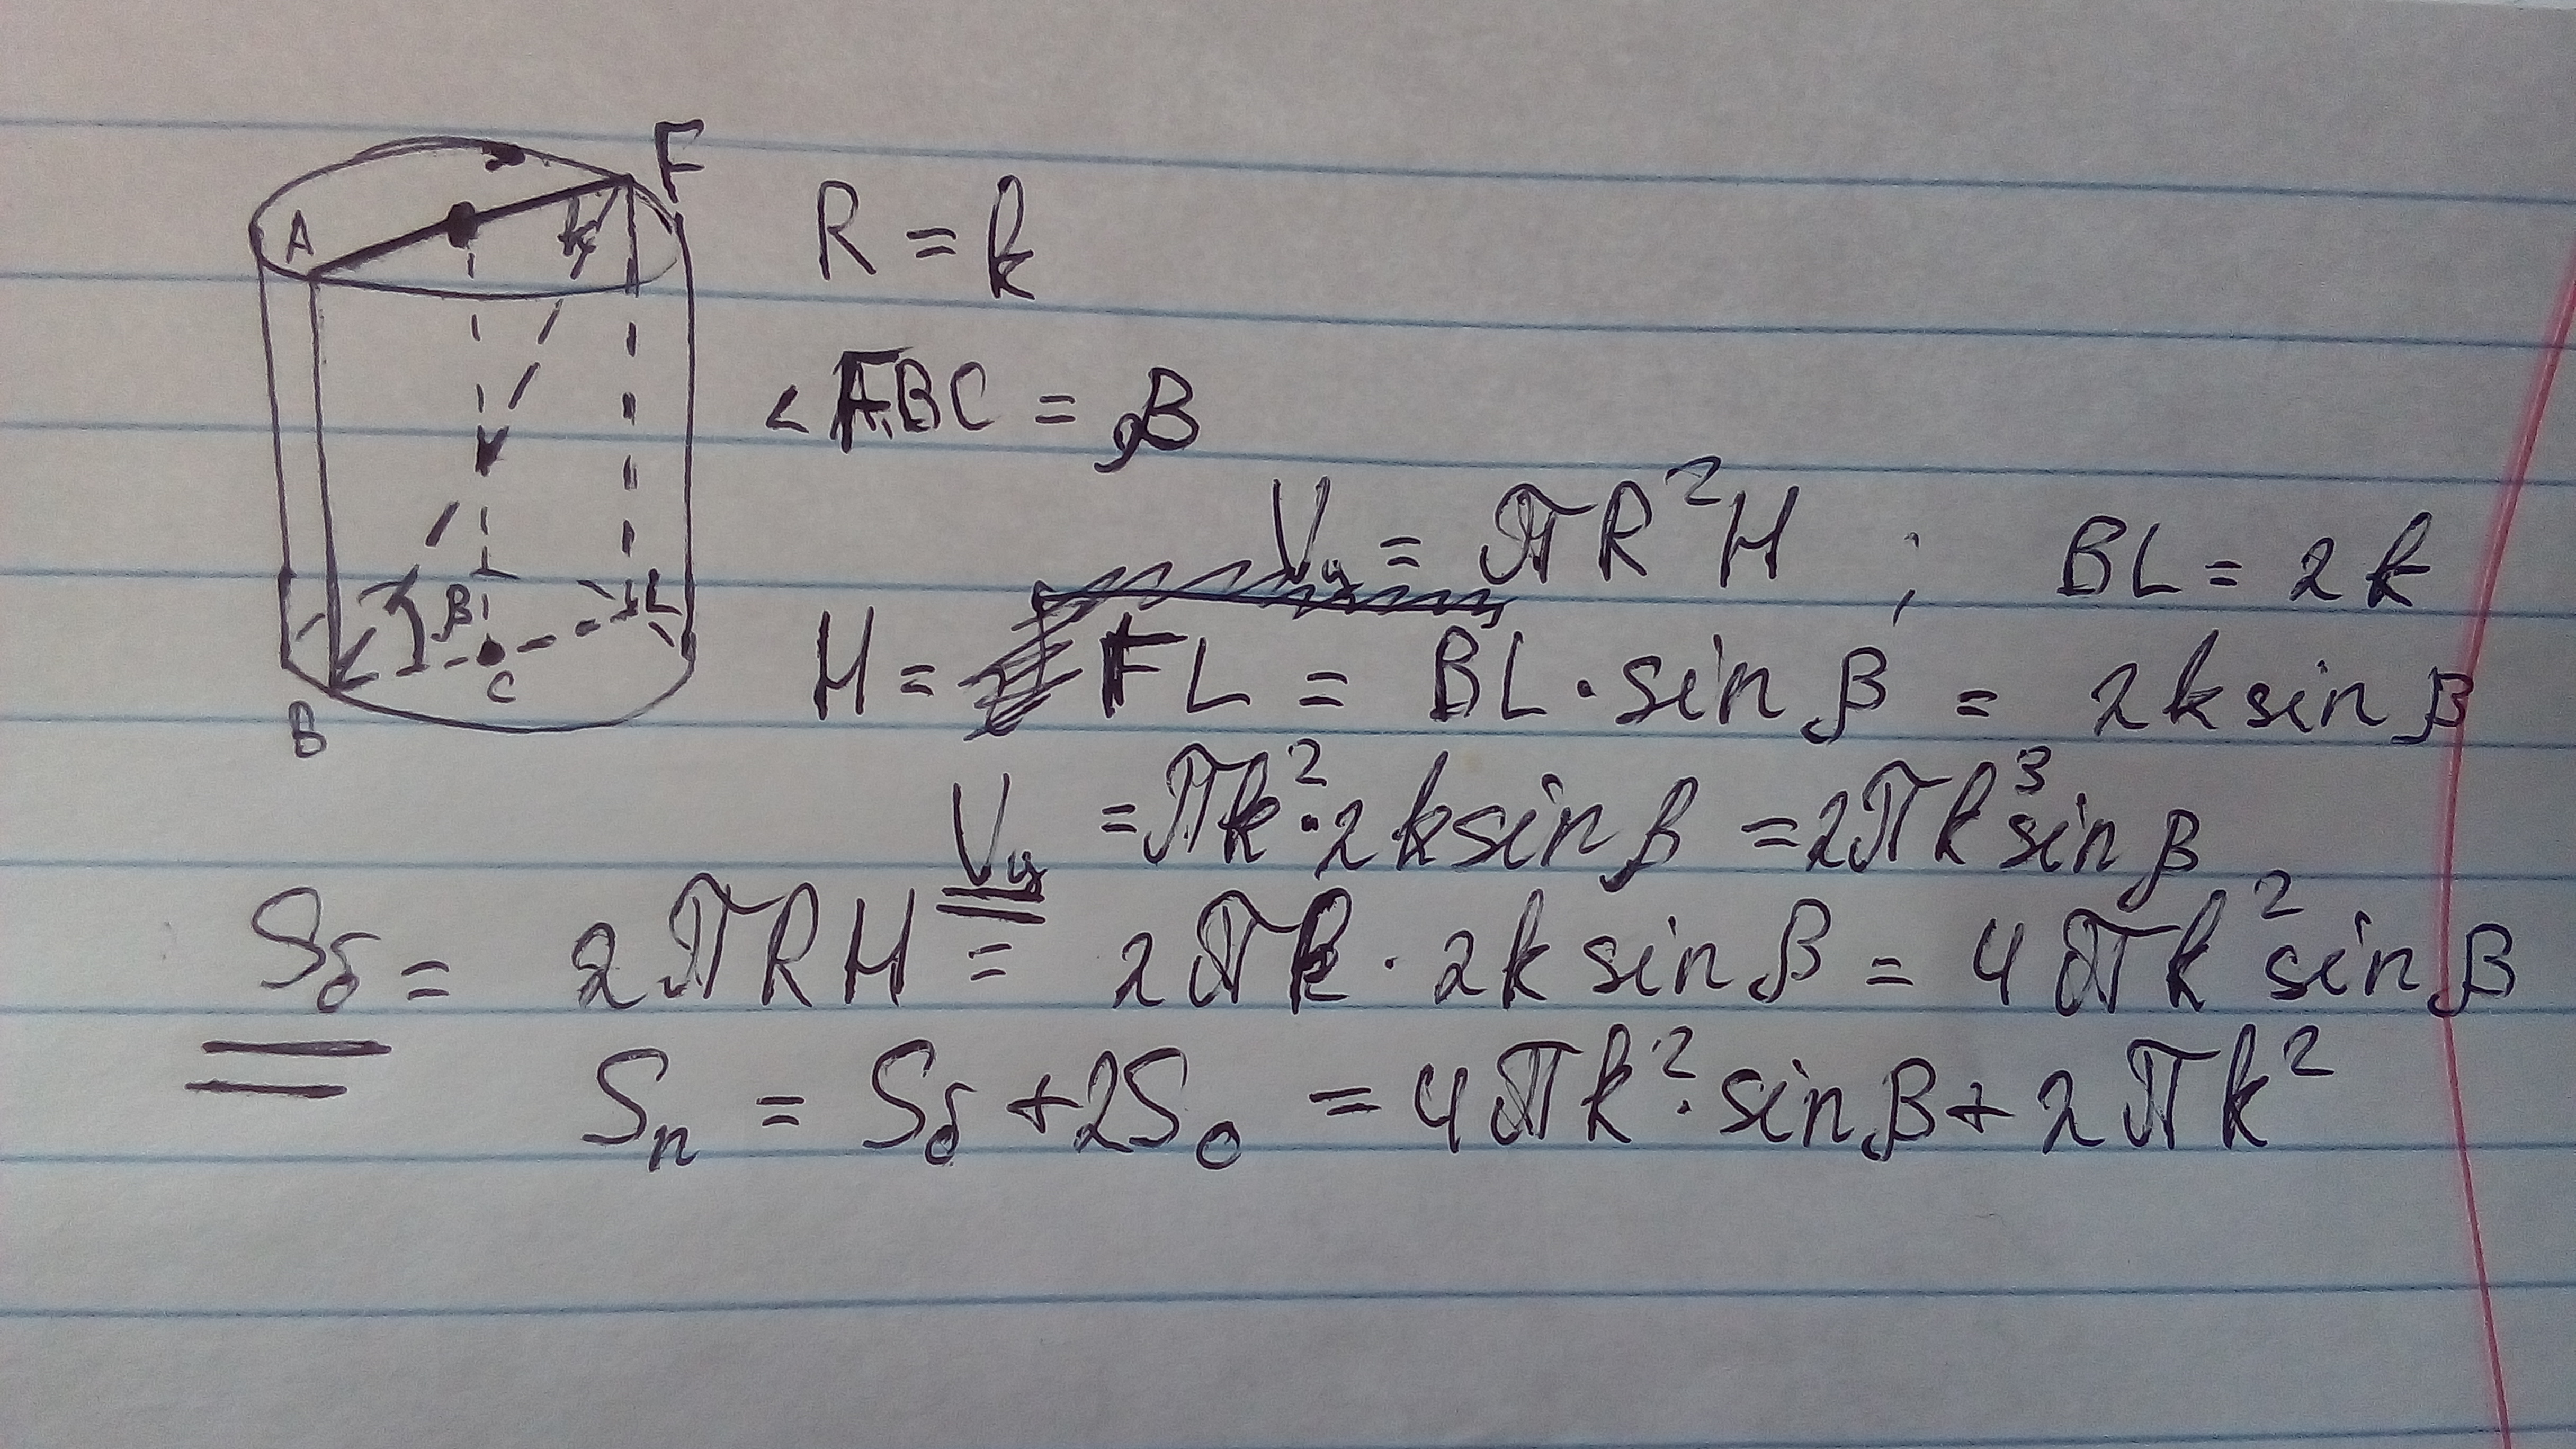 F
A
R = k
∠FBC = β
Vц = πR²H ; BL = 2k
β
L
C
B
H = FL = BL · sin β = 2k sin β
Vц = πk² · 2k sin β = 2πk³ sin β
Sб = 2πRH = 2πk · 2k sin β = 4πk² sin β
Sп = Sб + 2S₀ = 4πk² · sin β + 2πk²